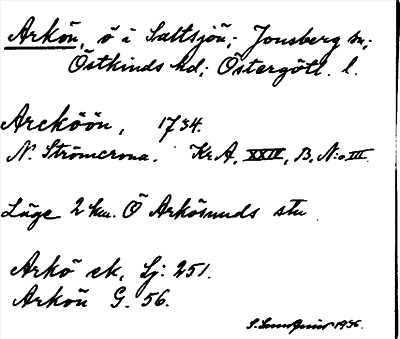 Arkön, ö i Saltsjön; Jonsberg sn;
Östkinds hd; Östergötl. l.
Areköön, 1734.
N. Strömcrona. Kr.A, XXIV, B, N:o III.
Läge 2 km. Ö Arkösunds stn
Arkö ek, Sj: 251.
Arkön G. 56.
1936.